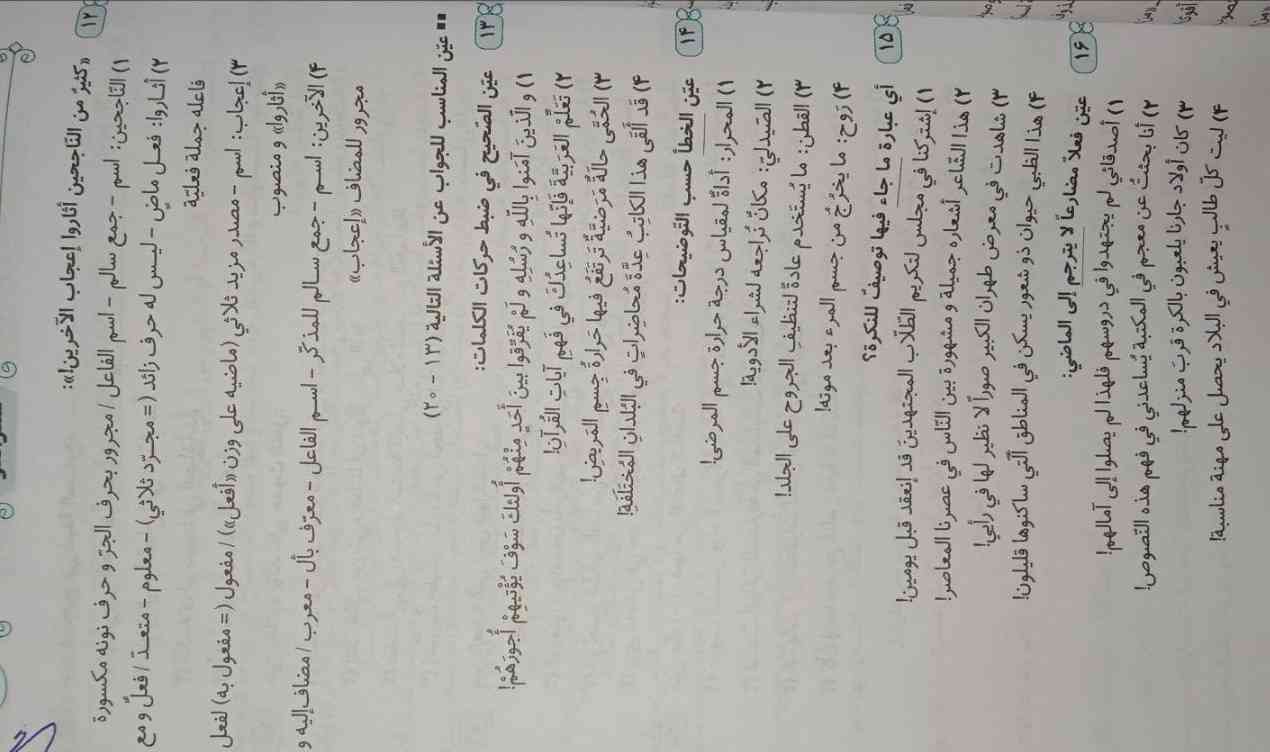 ۱۲ «كثيرٌ من النّاجحين أثاروا إعجاب الآخرين!»:
۱) النّاجحين: اسم - جمع سالم - اسم الفاعل / مجرور بحرف الجرّ و حرف نونه مكسورة
۲) أثاروا: فعل ماضٍ - ليس له حرف زائد (= مجرّد ثلاثي) - معلوم - متعدّ / فعلٌ و مع
فاعله جملة فعليّة
۳) إعجاب: اسم - مصدر مزيد ثلاثي (ماضيه على وزن «أفعل») / مفعول (= مفعول به) لفعل
«أثاروا» و منصوب
۴) الآخرين: اسم - جمع سالم للمذكّر - اسم الفاعل - معرّف بأل - معرب / مضاف إليه و
مجرور للمضاف «إعجاب»
عيّن المناسب للجواب عن الأسئلة التالية (۱۳ - ۲۰)
۱۳ عيّن الصّحيح في ضبط حركات الكلمات:
۱) و الّذينَ آمَنوا بِاللّهِ و رُسُلِهِ و لَمْ يُفَرِّقوا بينَ أَحَدٍ مِنْهُمْ أُولئكَ سَوْفَ يُؤْتيهِمْ أُجورَهُمْ!
۲) تَعَلُّمْ العَرَبيَّةَ فَإنَّها تُساعِدُكَ في فَهمِ آياتِ القُرآنِ!
۳) الحُمَّى حالَةٌ مَرَضيَّةٌ تَرتَفَعُ فيها حَرارَةُ جِسمِ المَريضِ!
۴) قَد أَلقَى هذا الكاتِبُ عِدَّةَ مُحاضِراتٍ في البُلدانِ المُختَلَفَةِ!
۱۴ عيّن الخطأ حسب التّوضيحات:
۱) المحرار: أداةٌ لمقياس درجة حرارة جسم المرضى!
۲) الصّيدليّ: مكانٌ تُراجعه لشراء الأدوية!
۳) القطن: ما يُستَخدم عادةً لتنظيف الجروح على الجلد!
۴) رَوح: ما يخرُجُ من جسم المرء بعد موته!
۱۵ أي عبارة ما جاء فيها توصيفٌ للنكرة؟
۱) إشتركنا في مجلس لتكريم الطّلّاب المجتهدينَ قد إنعقد قبل يومين!
۲) هذا الشّاعر أشعاره جميلة و مشهورة بين النّاس في عصرنا المعاصر!
۳) شاهدت في معرض طهران الكبير صوراً لا نظير لها في رأيي!
۴) هذا الظبي حيوان ذو شعور يسكن في المناطق الّتي ساكنوها قليلون!
۱۶ عيّن فعلاً مضارعاً لا يترجم إلى الماضي:
۱) أصدقائي لم يجتهدوا في دروسهم فلهذا لم يصلوا إلى آمالهم!
۲) أنا بحثتُ عن معجم في المكتبة يُساعدني في فهم هذه النّصوص!
۳) كان أولاد جارنا يلعبون بالكرة قربَ منزلهم!
۴) ليت كلّ طالبٍ يعيش في البلاد يحصل على مهنة مناسبة!